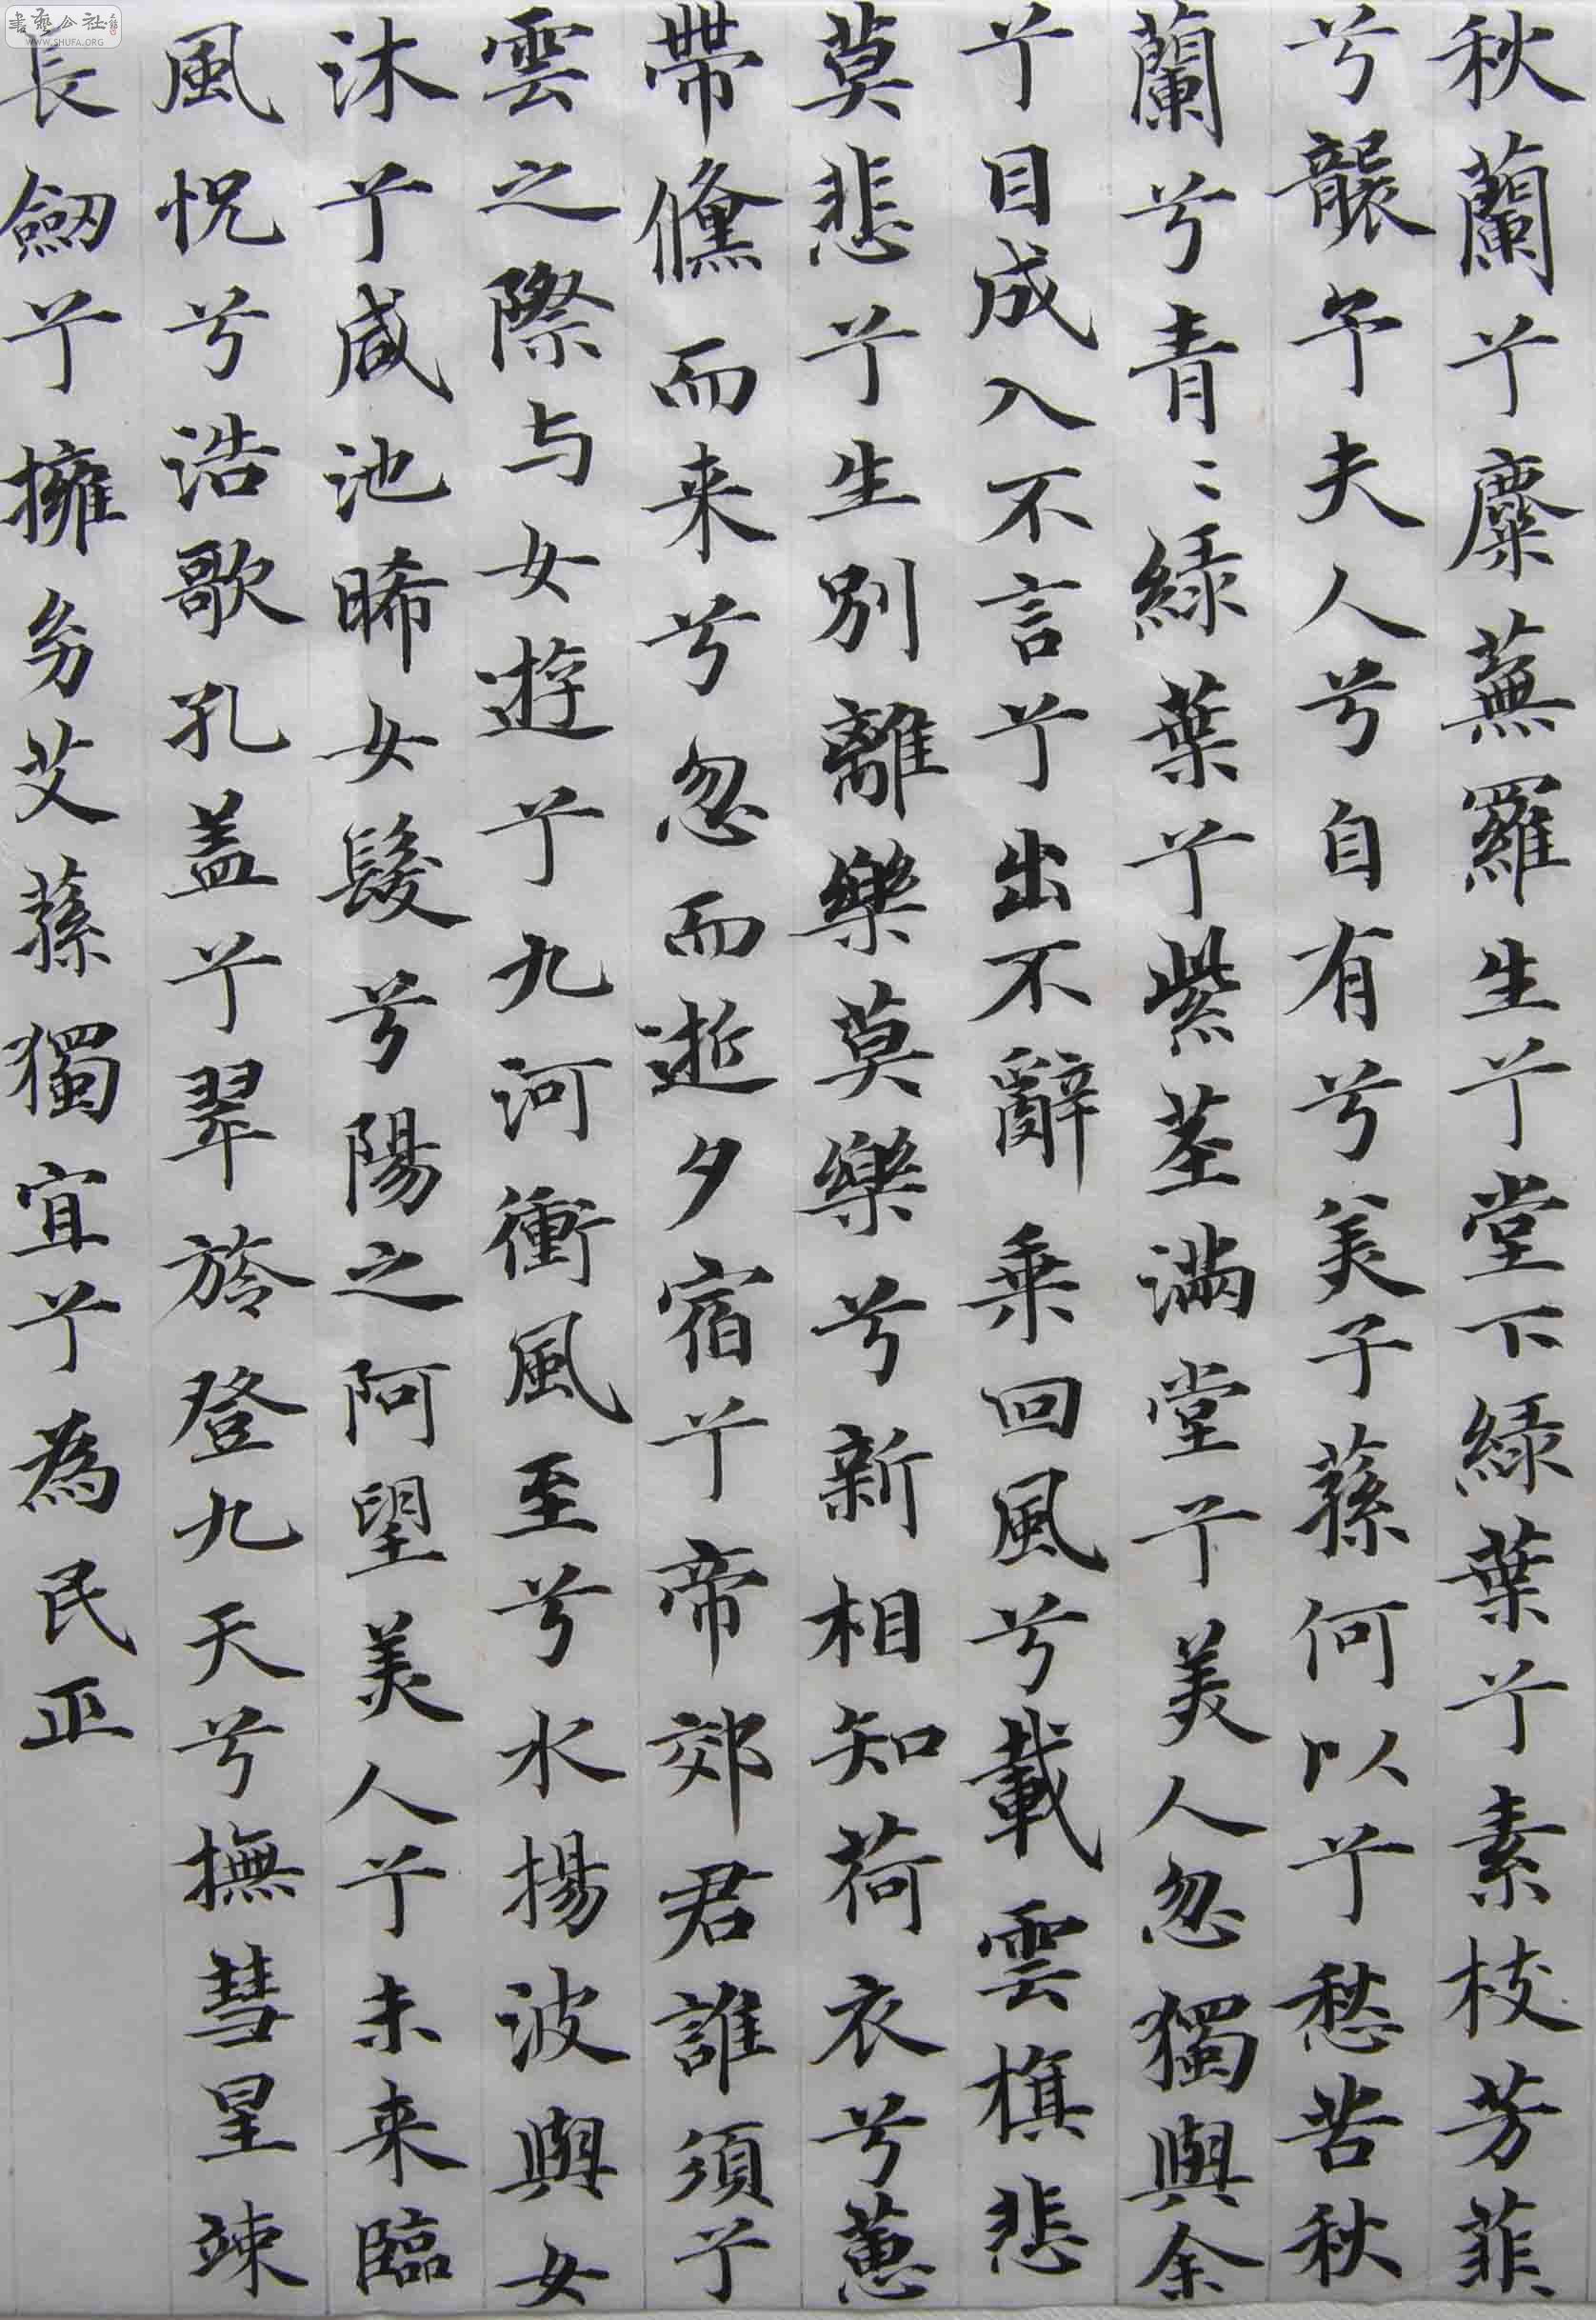 秋蘭兮麋蕪羅生兮堂下綠葉兮素枝芳菲
兮襲予夫人兮自有兮美子蓀何以兮愁苦秋
蘭兮青〻綠葉兮紫莖滿堂兮美人忽獨與余
兮目成入不言兮出不辭乘回風兮載雲旗悲
莫悲兮生別離樂莫樂兮新相知荷衣兮蕙
帶儵而来兮忽而逝夕宿兮帝郊君誰須兮
雲之際与女遊兮九河衝風至兮水揚波與女
沐兮咸池晞女髮兮陽之阿望美人兮未来臨
風怳兮浩歌孔盖兮翠旍登九天兮撫彗星竦
長劒兮擁㓜艾蓀獨宜兮為民正
書藝公社
WWW.SHUFA.ORG